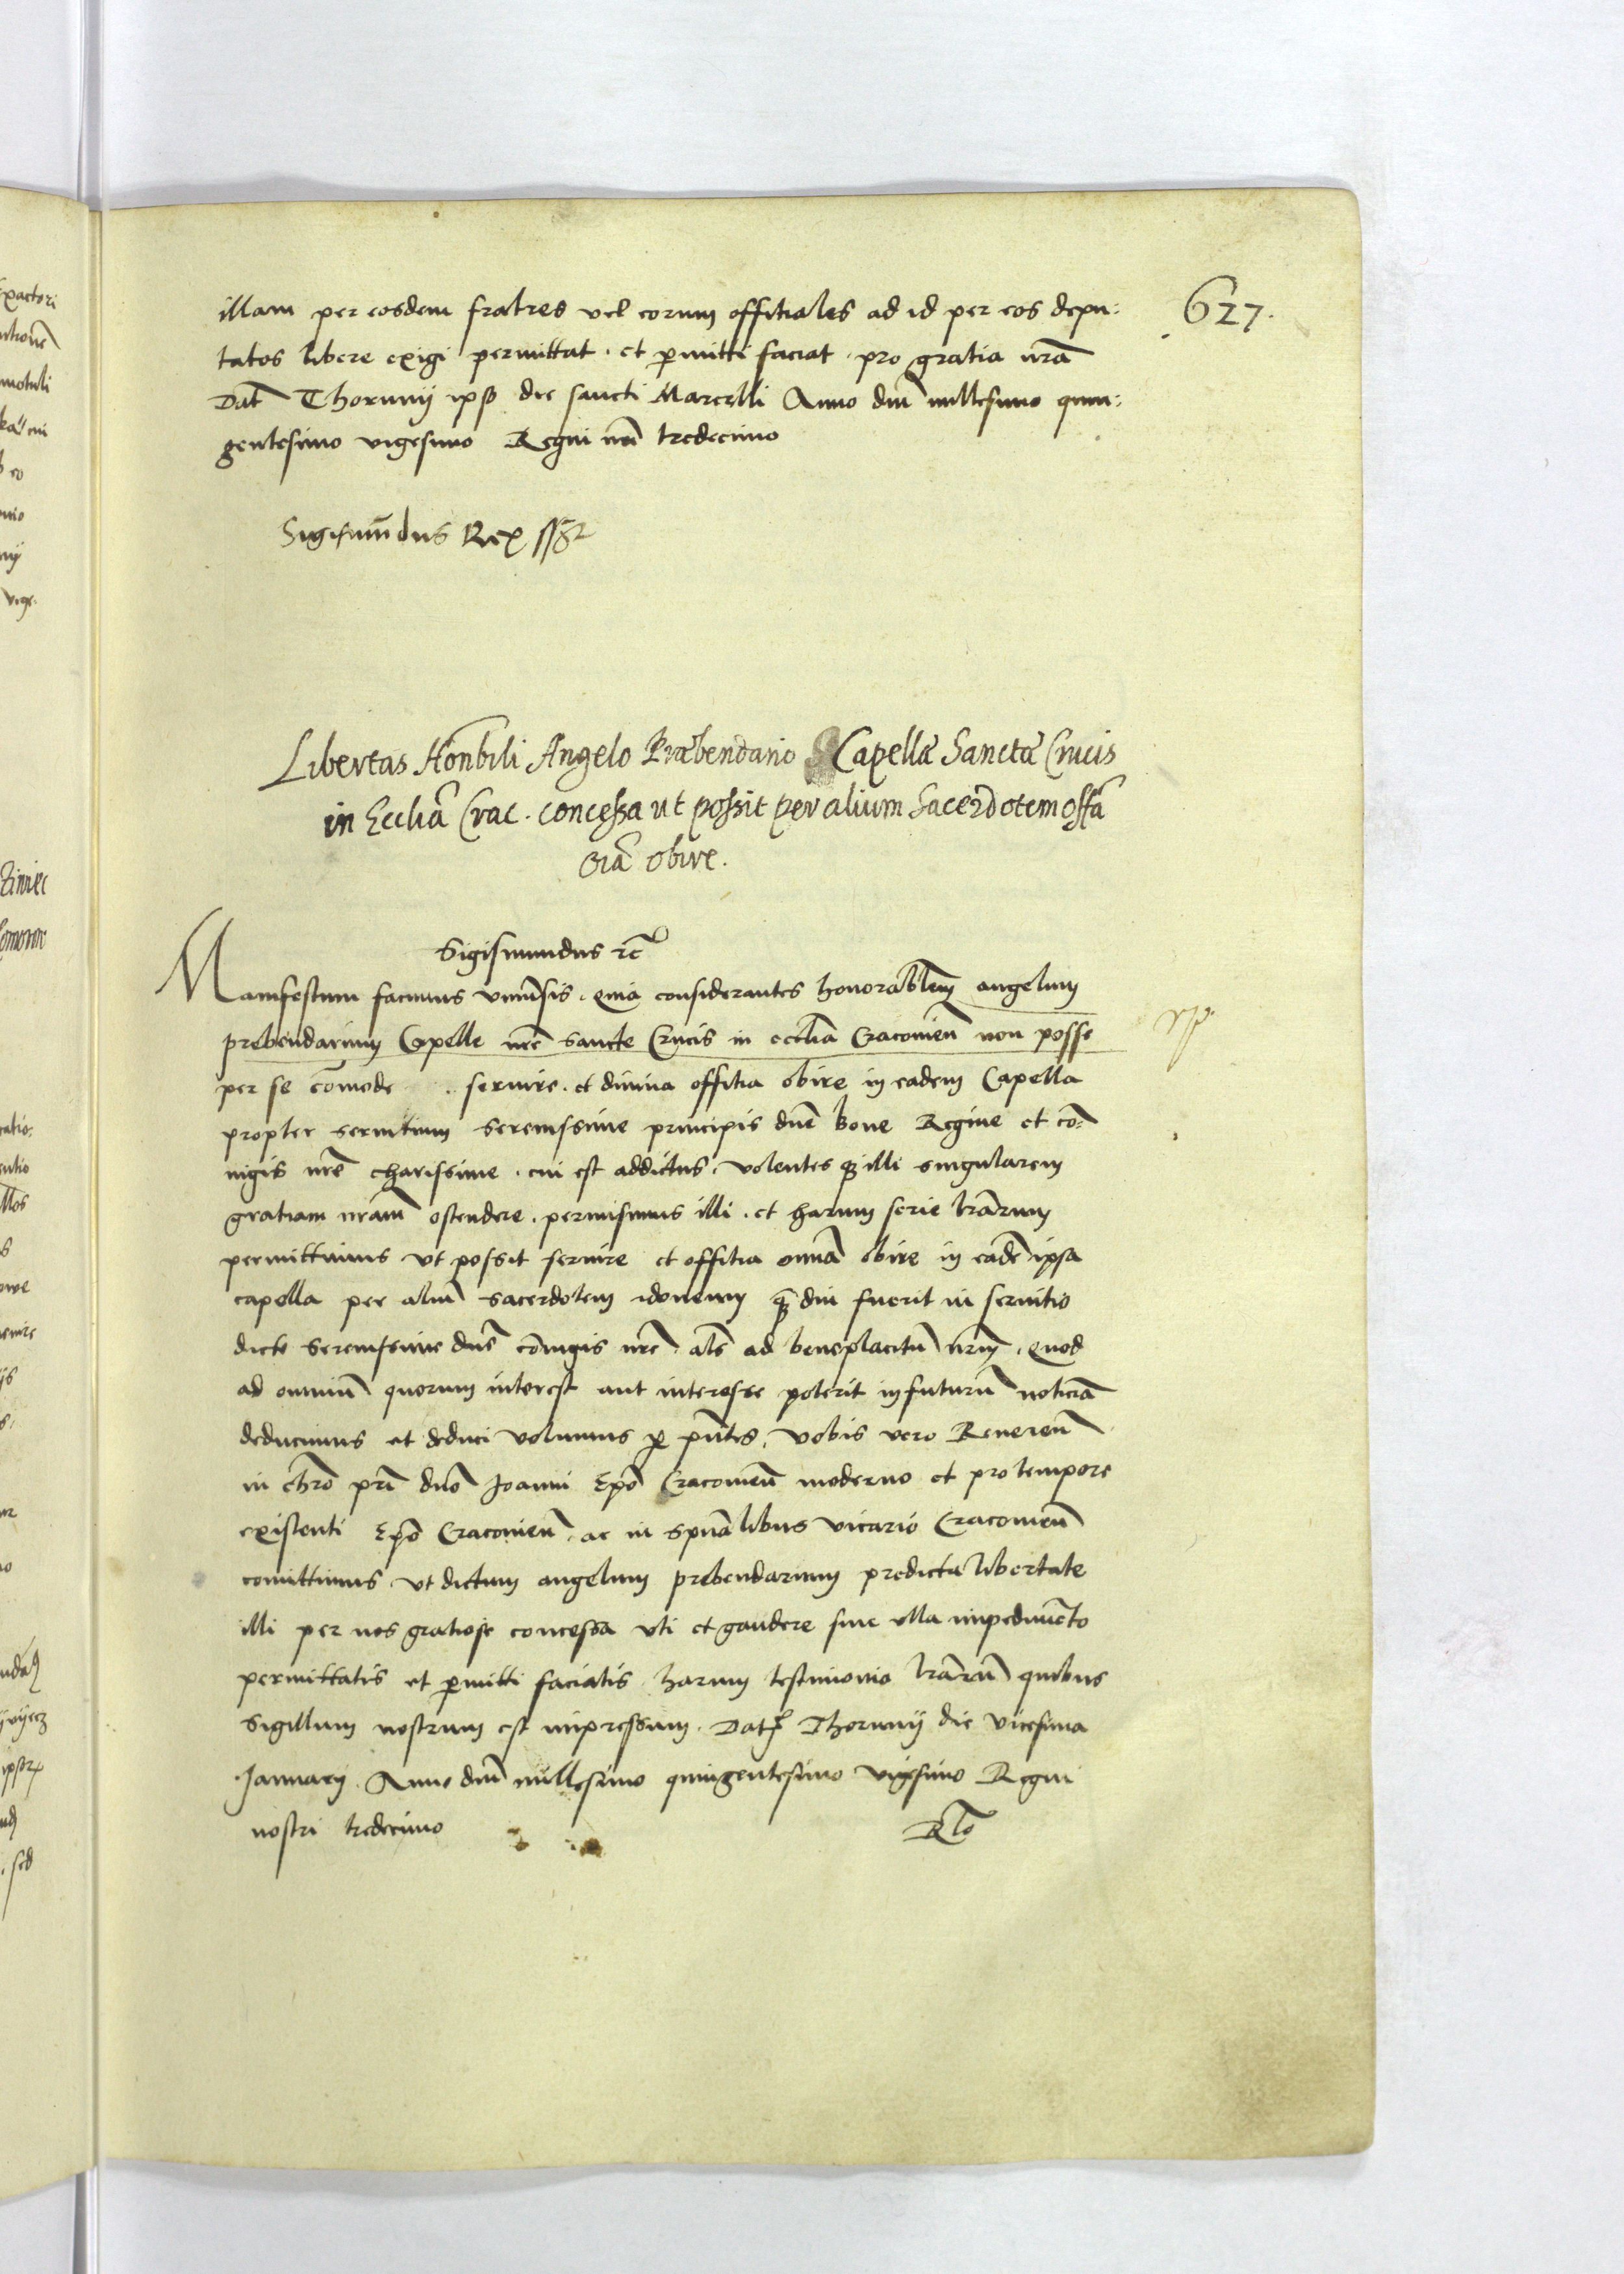 627.
illam per eosdem fratres vel eorum offitiales ad id per eos depu:
tatos libere exigi permittat. et pmitti faciat. pro gratia nrã
Dat Thorunij ipso die sancti Marcelli Anno dni millesimo quin:
gentesimo vigesimo Regni nri tredecimo
Sigismũdus Rex sszt
Libertas Honbili Angelo Præbendario Capellæ Sanctæ Crucis
in Ecclia Crac. concessa ut possit per alium Sacerdotem offa
oĩa obire.
Sigismundus rc̃
Manifestum facimus vniũsis. quia considerantes honorablem angelum
prebendarium Capelle nrẽ sancte Crucis in ecclia Cracovien̄ non posse
per se cõmode . seruire. et diuina offitia obire in eadem Capella
propter seruitium serenissime principis dnẽ bone Regine et cõ
iugis nrẽ charissime. cui est addictus. volentes qz illi singularem
gratiam nram ostendere. permisimus illi. et harum serie lrãrum
permittimus vt possit seruire et offitia omniã obire in eadẽ ipsa
capella per aliũ sacerdotem idoneum qm̃ diu fuerit in seruitio
dicte serenissime dnẽ cõiugis nrẽ. als ad beneplacitũ nrm̃. Quod
ad omniũ quorum interest aut interesse poterit in futurũ noticiã
deducimus et deduci volumus p pñtes. vobis vero Reueren̄
in chrõ pri dño Joanni Epõ Cracovien̄ moderno et pro tempore
existenti Epõ Cracovien̄. ac in spũalibus vicario Cracovien̄
comittimus. vt dictum angelum prebendarium predicta libertate
illi per nos gratiose concessa vti et gaudere sine vlla impedimẽto
permittatis et pmitti faciatis. harum testimonio lrãrũ quibus
sigillum nostrum est impressum. Dat Thorunij die vicesima
Januarij. Anno dni millesimo quingentesimo vigesimo Regni
nostri tredecimo
Rlo